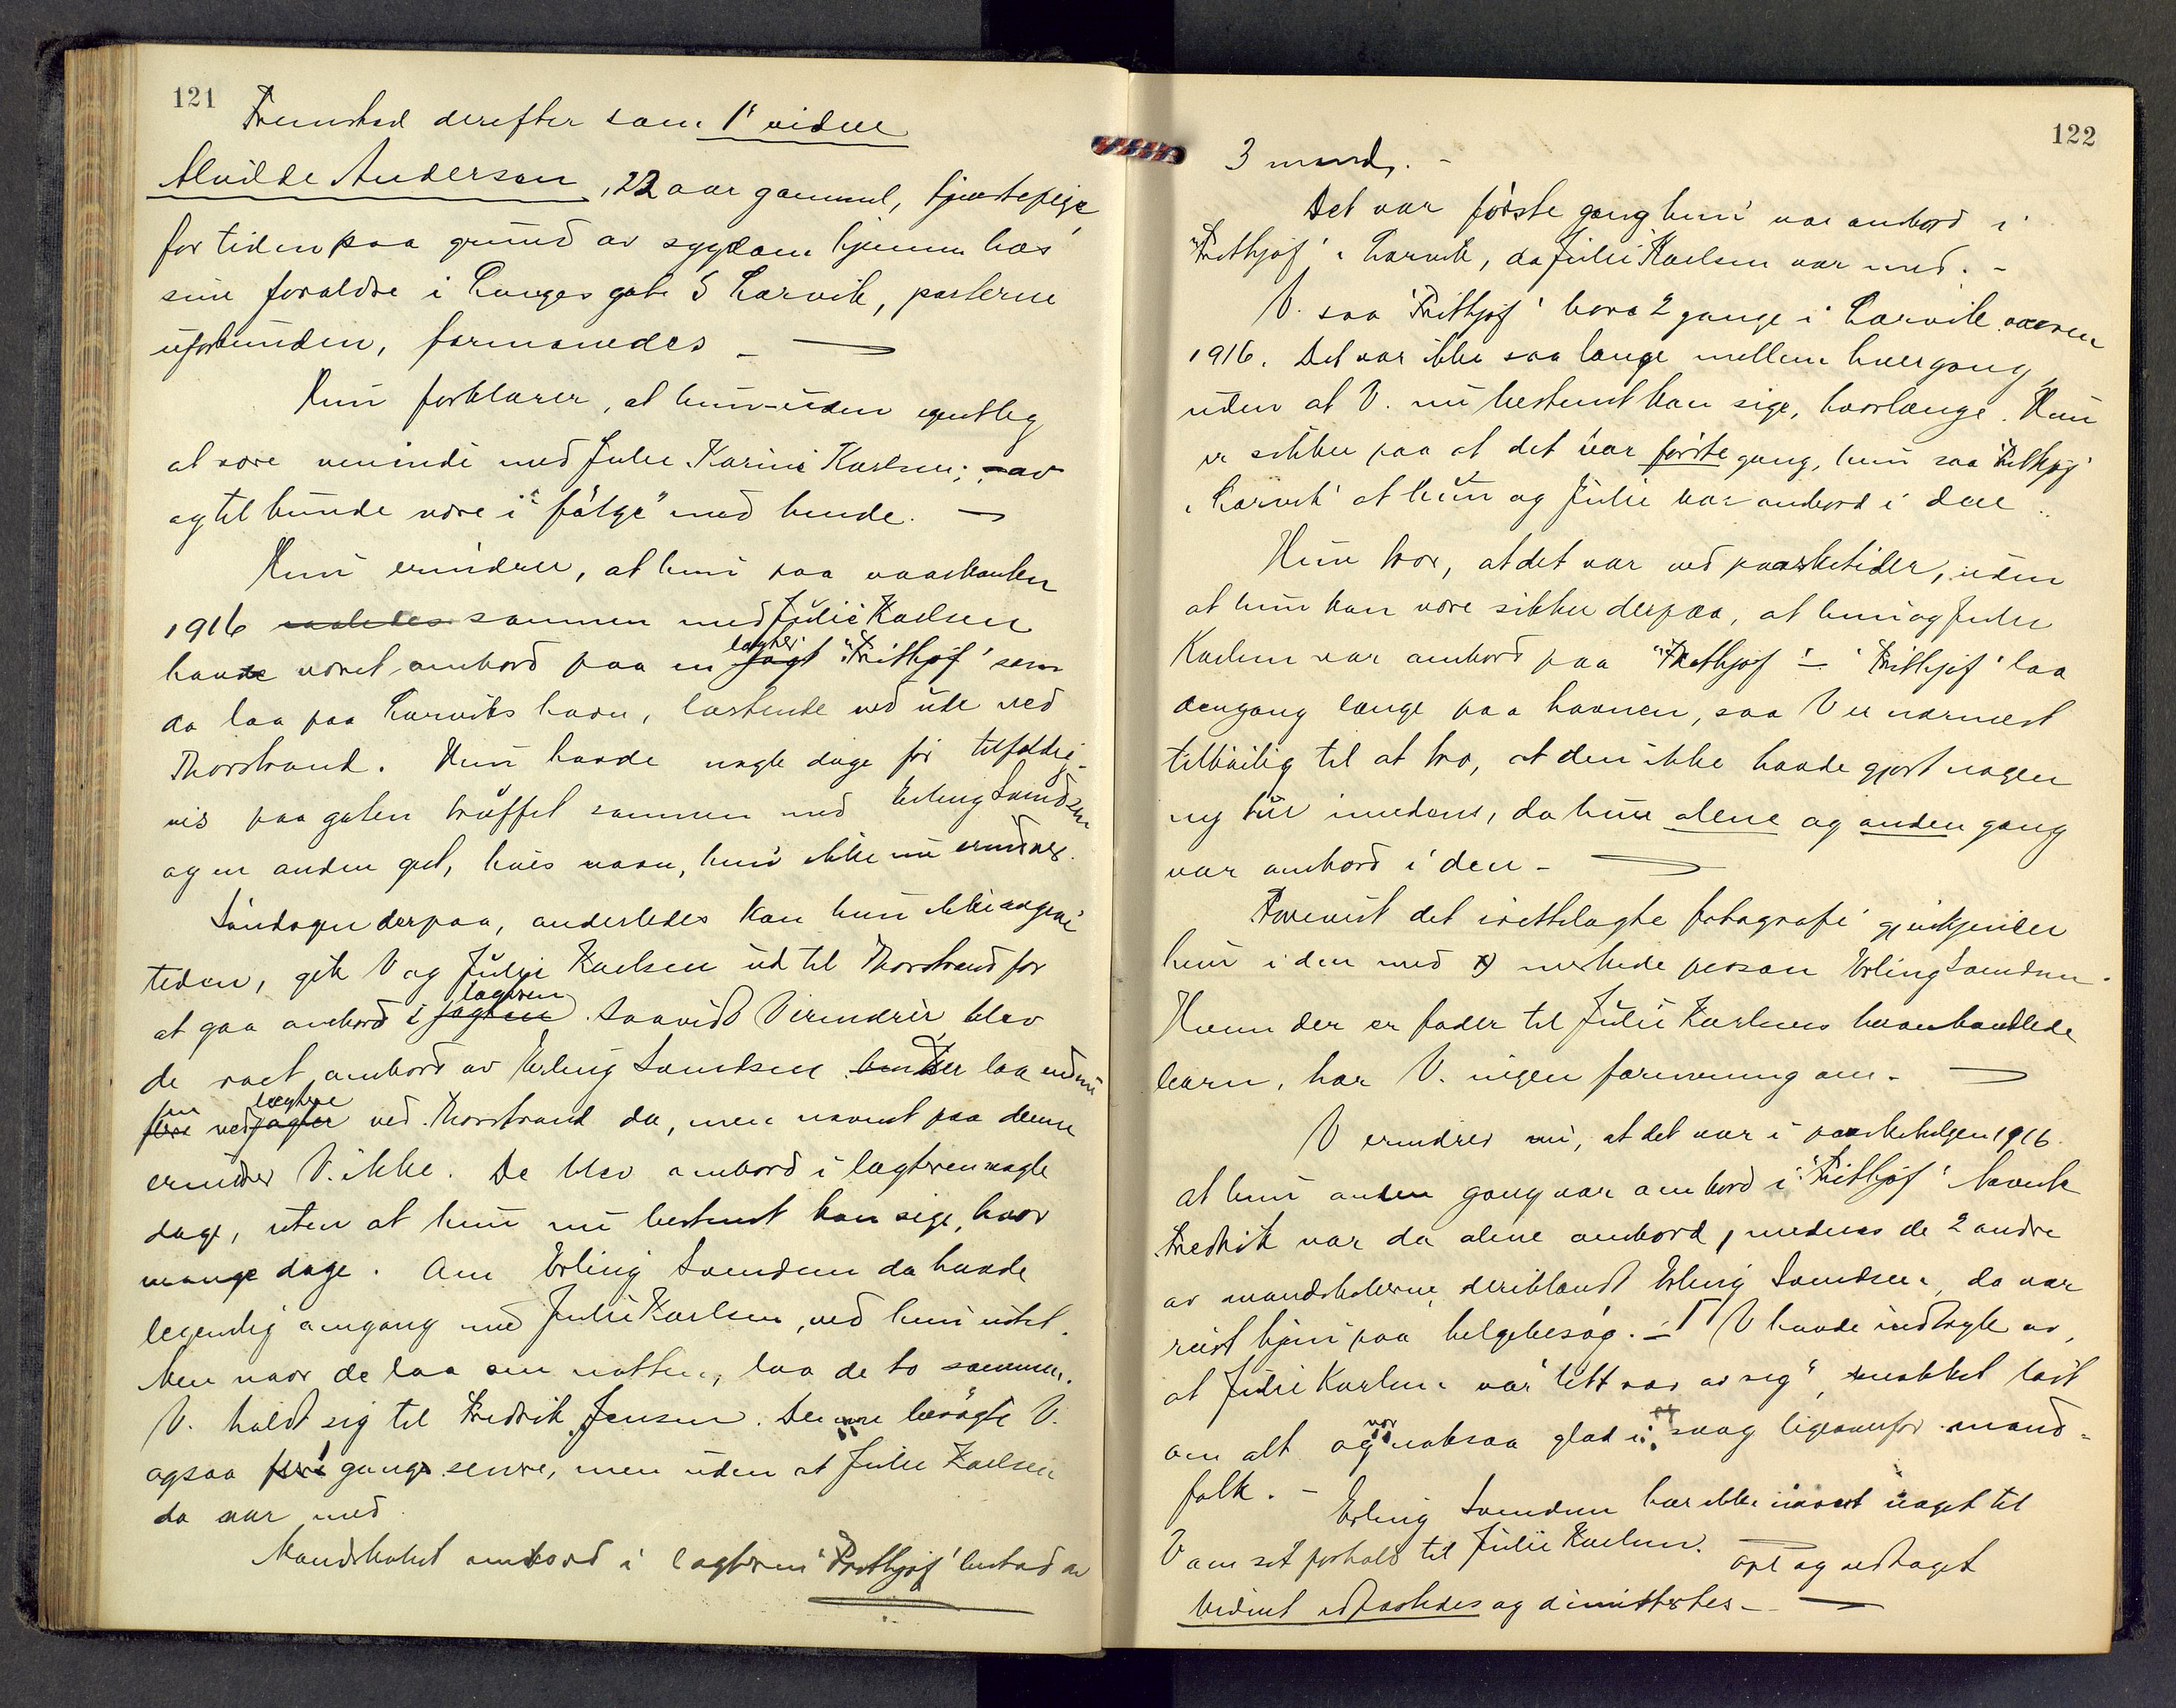 121
Fremstod derefter som 1' vidne
Alvilde Andersen, 22 aar gammel, tjenestepige
for tiden paa grund av sygdom hjemme hos
sine forældre i Langes gate 5 Larvik, parterne
uforbunden, formanedes –
Hun forklarer, at hun uden egentlig
at være veninde med Julie Karine Karlsen; av
og til kunde være i "følge" med hende. –
Hun erindrer, at hun paa vaarkanten
1916 saaledes sammen med Julie Karlsen
havde været ombord paa en jagt lægter "Frithjof" som
da laa paa Larviks havn, lastende ved ute ved
Thorstrand. Hun havde nogle dage før tilfældig-
vis paa gaten truffet sammen med Erling Svendsen
og en anden gut, hvis navn, hun ikke nu erindrer.
Søndagen derpaa, anderledes kan hun ikke angive
tiden, gik V og Julie Karlsen ud til Thorstrand for
at gaa ombord i jagten lægteren. Saavidt V erindrer blev
de roet ombord av Erling Svendsen. Der laa endnu
flere jagter lægtere ved Thorstrand da, men navnet paa denne
erindrer V. ikke. De blev ombord i lægteren nogle
dage, uten at hun nu bestemt kan sige, hvor
mange dage. Om Erling Svendsen da havde
legemlig omgang med Julie Karlsen, ved hun intet.
Men naar de laa om natten, laa de to sammen.
V. holdt sig til Fredrik Jensen. Denne besøgte V.
ogsaa gange senere, men uden at Julie Karlsen
da var med.
Mandskabet ombord i lægteren "Frithjof" bestod av
122
3 mand. –
Det var første gang hun var ombord i
"Frithjof" i Larvik, da Julie Karlsen var med. –
V. saa "Frithjof" bare 2 gange i Larvik vaaren
1916. Det var ikke saa længe mellem hver gang,
uden at V. nu bestemt kan sige, hvorlænge. Hun
er sikker paa at det var første gang, hun saa "Frithjof"
i Larvik at hun og Julie var ombord i den.
Hun tror, at det var ved paasketider, uden
at hun kan være sikker derpaa, at hun og Julie
Karlsen var ombord paa "Frithjof" – "Frithjof" laa
dengang længe paa havnen, saa V er nærmest
tilbøielig til at tro, at den ikke havde gjort nogen
ny tur imedens, da hun alene og anden gang
var ombord i den –
Forevist det irettelagte fotografi gjenkjender
hun i den med x) merkede person Erling Svendsen.
Hvem der er fader til Julie Karlsens
barn, har V. ingen formening om. –
V erindrer nu, at det var i paaskehelgen 1916.
at hun anden gang var ombord i "Frithjof".
Fredrik var da alene ombord, medens de 2 andre
av mandskaberne, deriblandt Erling Svendsen, da var
reist hjem paa helgebesøg. – V havde indtryk av,
at Julie Karlsen var "lett av sig", snakket løst
om alt og var noksaa glad i ligeoverfor mand-
folk. – Erling Svendsen har ikke nævnt noget til
V om sit forhold til Julie Karlsen. Opl og vedtaget
Vidnet edfæstedes og dimitteredes –